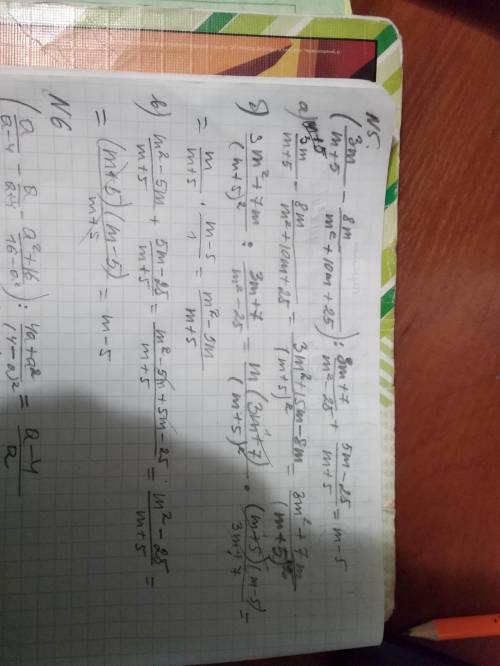 N5.
(3m/(m+5) - 8m/(m²+10m+25)) : (3m+7)/(m²-25) + (5m-25)/(m+5) = m-5
а) 3m/(m+5) - 8m/(m²+10m+25) = (3m²+15m-8m)/(m+5)² = (3m²+7m)/(m+5)²
б) (3m²+7m)/(m+5)² : (3m+7)/(m²-25) = m(3m+7)/(m+5)² · (m+5)(m-5)/(3m+7) =
= m/(m+5) · (m-5)/1 = (m²-5m)/(m+5)
в) (m²-5m)/(m+5) + (5m-25)/(m+5) = (m²-5m+5m-25)/(m+5) = (m²-25)/(m+5) =
= (m+5)(m-5)/(m+5) = m-5
N6
(a/(a-4) - a/(a+4) - (a²+16)/(16-a²)) : (4a+a²)/(4-a)² = (a-4)/a